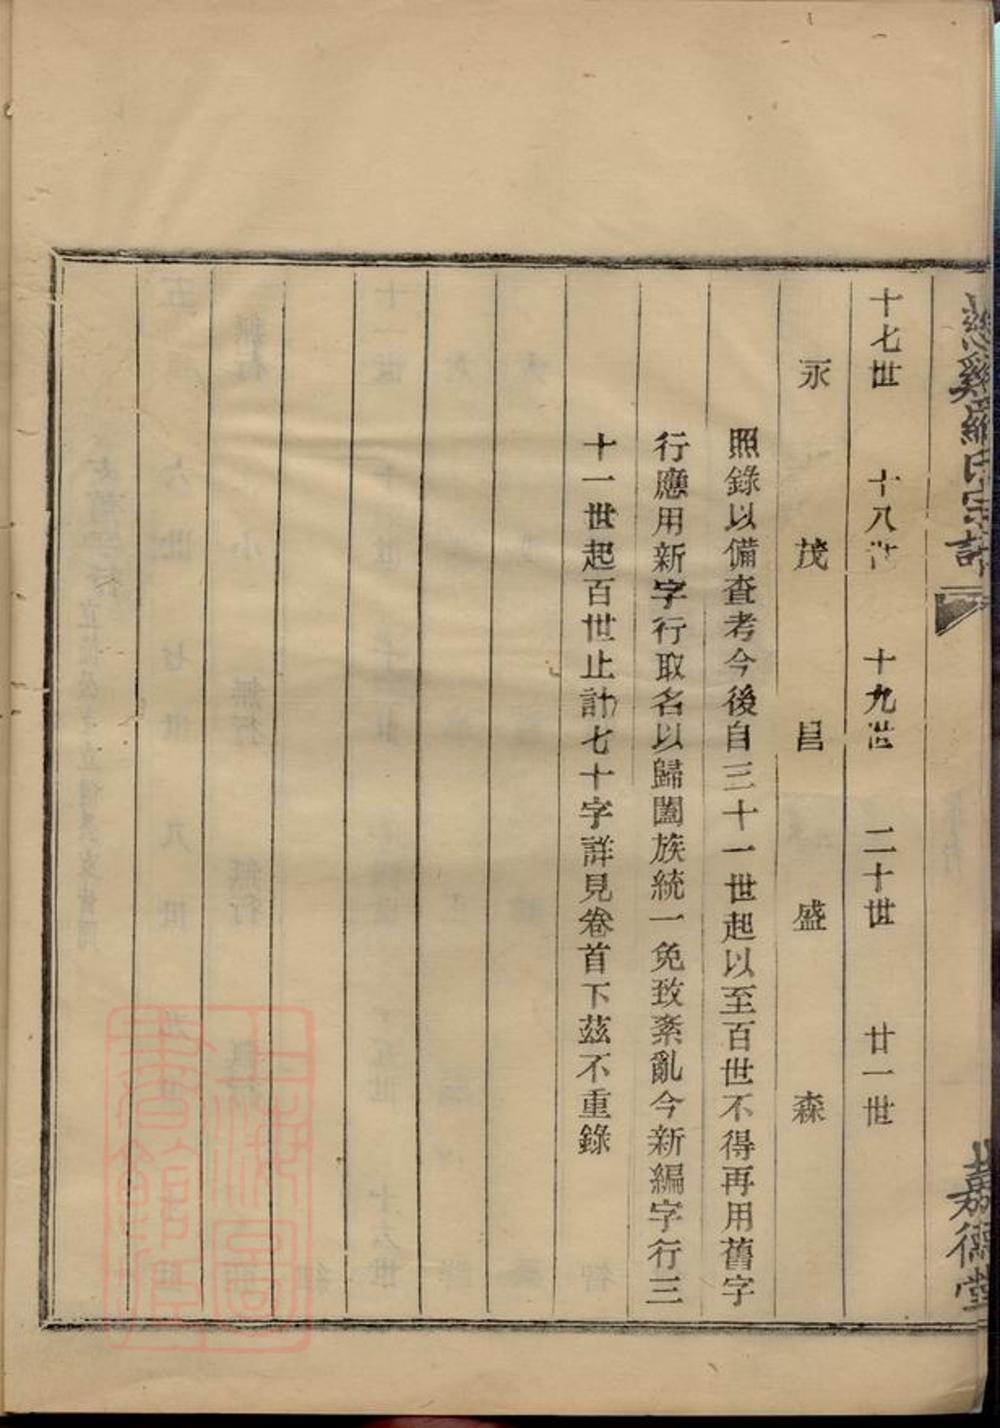 慈谿羅氏宗譜
嘉德堂
十七世 十八世 十九世 二十世 廿一世
永 茂 昌 盛 森
照錄以備查考今後自三十一世起以至百世不得再用舊字
行應用新字行取名以歸闔族統一免致紊亂今新編字行三
十一世起百世止計七十字詳見卷首下茲不重錄